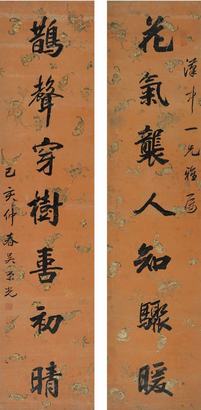 漢中一兄雅屬
花氣襲人知驟暖
鵲聲穿樹喜初晴
己亥仲春吳榮光